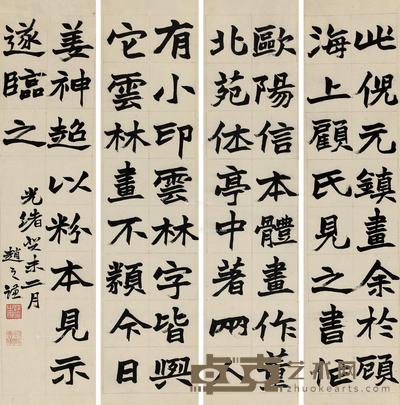 此倪元鎮畫余於顧
海上顧氏見之書作
歐陽信本體畫作董
北苑体亭中著兩人
有小印雲林字皆與
它雲林畫不類今日
姜神超以粉本見示
遂臨之
光緒癸未二月
趙之謙